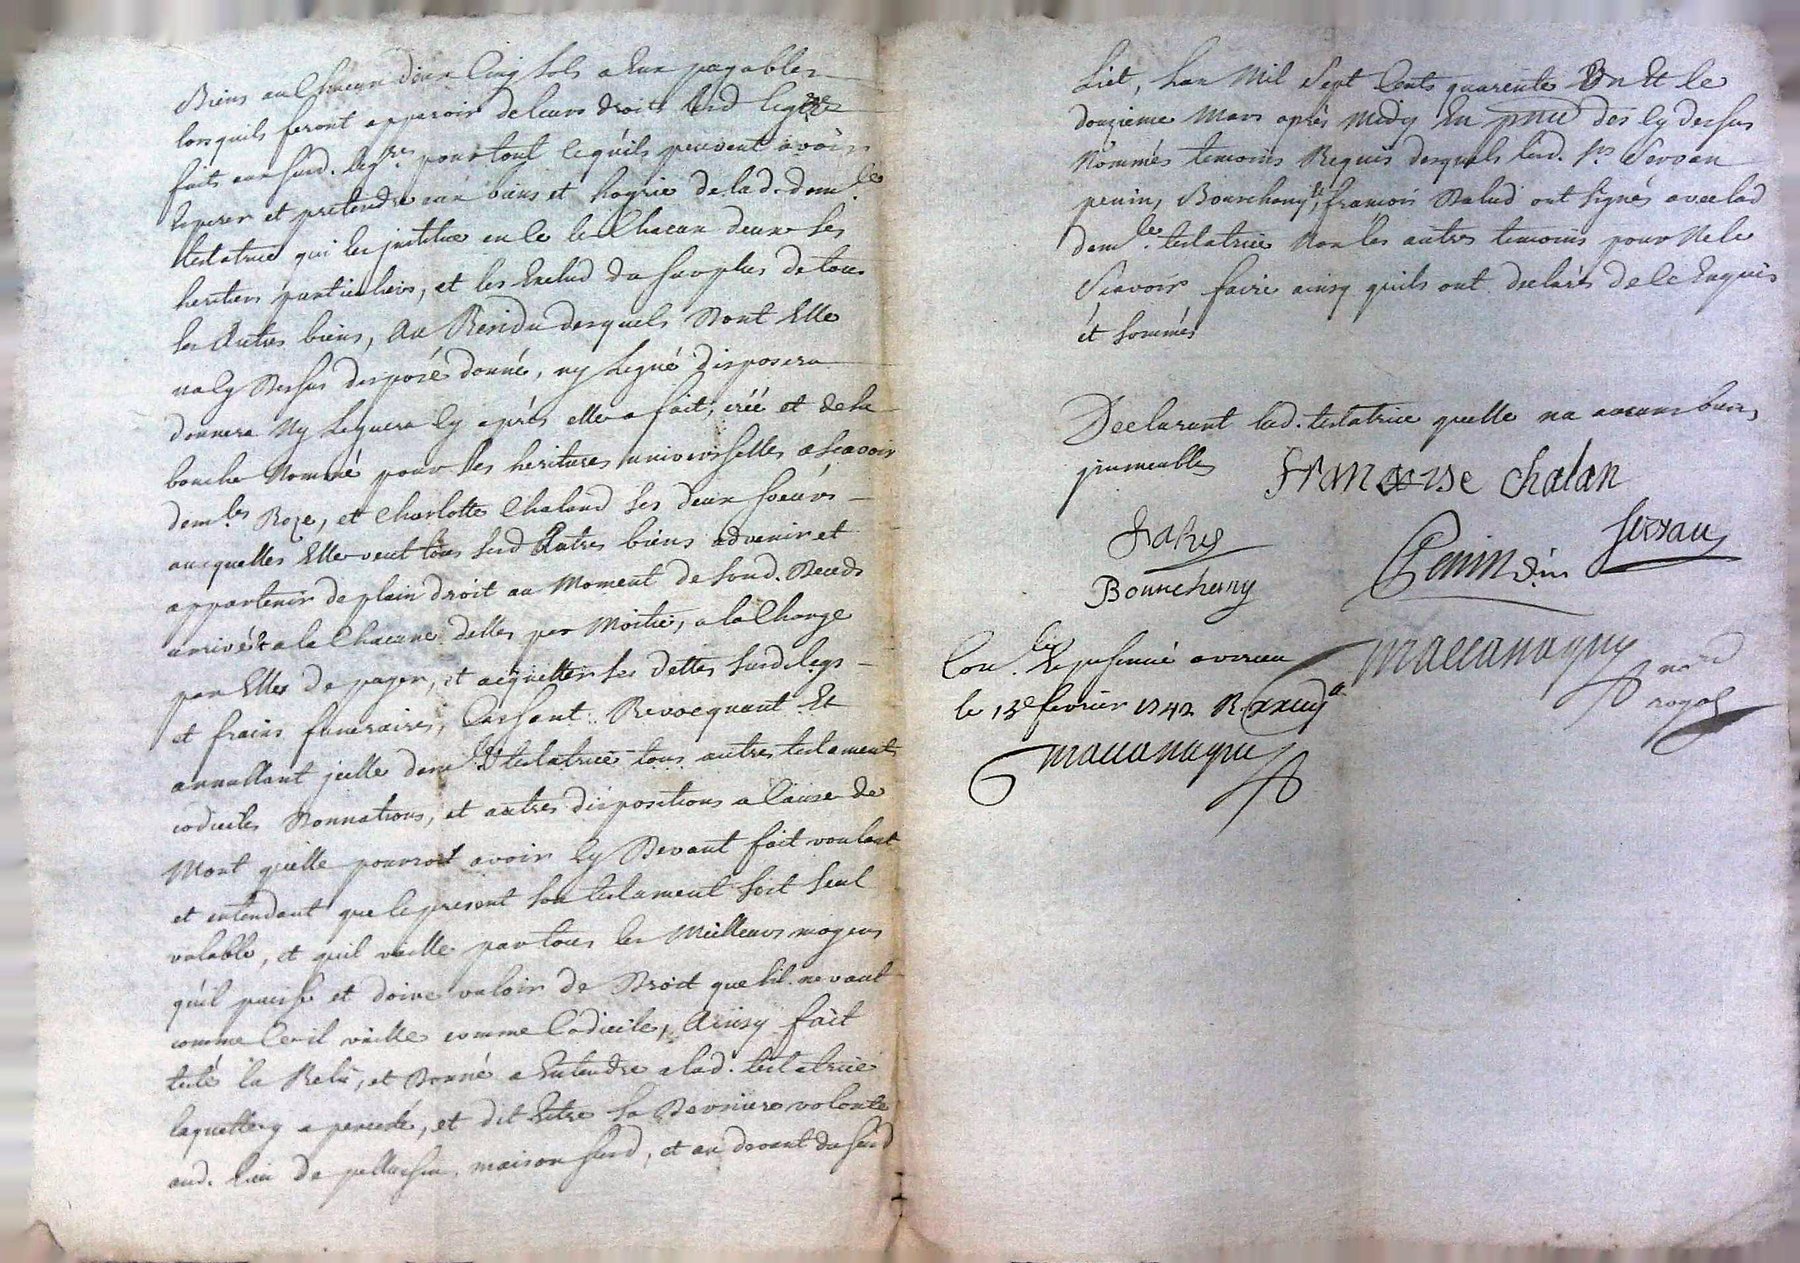 Biens au Chacun deux Cinq sols a Eux payables
lorsquils feront apparoir de leurs droits lesd legats
faits aux susd. leg.res pour tout ce quils peuvent avoir
Esperer et pretendre aux biens et hoyrie de lad. dem.lle
testatrice qui les jnstitue en ce le Chacun deux ses
heritiers particuliers, et les Exclud du surplus de tous
ses Autres biens, Au Residu desquels Dont Elle
na Cy Dessus disposé donné, ny Legué disposera
donnera Ny Leguera Cy aprés elle a fait, créé et de sa
bouche Nommé pour ses heritieres universselles a scavoir
dem.les Roze, et Charlotte Chaland ses deux soeurs
auxquelles Elle veut tous sesd Autres biens advenir et
appartenir de plain droit au Moment de sond. Deceds
arrivé & a le Chacune delles par Moitie, a la Charge
par Elles de payer, et acquitter ses dettes susd. legs
et frais funeraires, Cassant Revocquant Et
annullant jcelle dem.lle testatrice tous autres testaments
codiciles Donnations, et autres dispositions a Cause de
Mort quelle pourroit avoir Cy Devant fait voulant
et entendant que le present son testament soit seul
valable, et quil vaille par tous les Meilleurs moyens
quil puisse et doive valoir de Droit que sil ne vaut
comme Cee il vaille comme Codicile, Ainsy fait
testé la Relu, et Donné a Entendre a lad. testatrice
laquelle y a persisté, et dit Estre sa Derniere volonté
aud. lieu de pellussin maison susd, et au devant du susd
Liet, Lan Mil Sept Cents quarente Un Et le
douzieme Mars aprés Midy En pnce des Cy dessus
Nommés temoins Requis desquels lesd. srs Servan
penin, Bounchany, françois Valud ont signés avec lad
dem.lle testatrice Non les autres temoins pour Ne le
Scavoir faire ainsy quils ont declarés de ce Enquis
ét sommés
Declarant lad. testatrice quelle na aucuns biens
jmmeubles
Francoise chalan
servan
Penin
Bounchany
Con.lle
le 13e fevrier 1742 R
maccanagny
maccanagny
no.re
royal